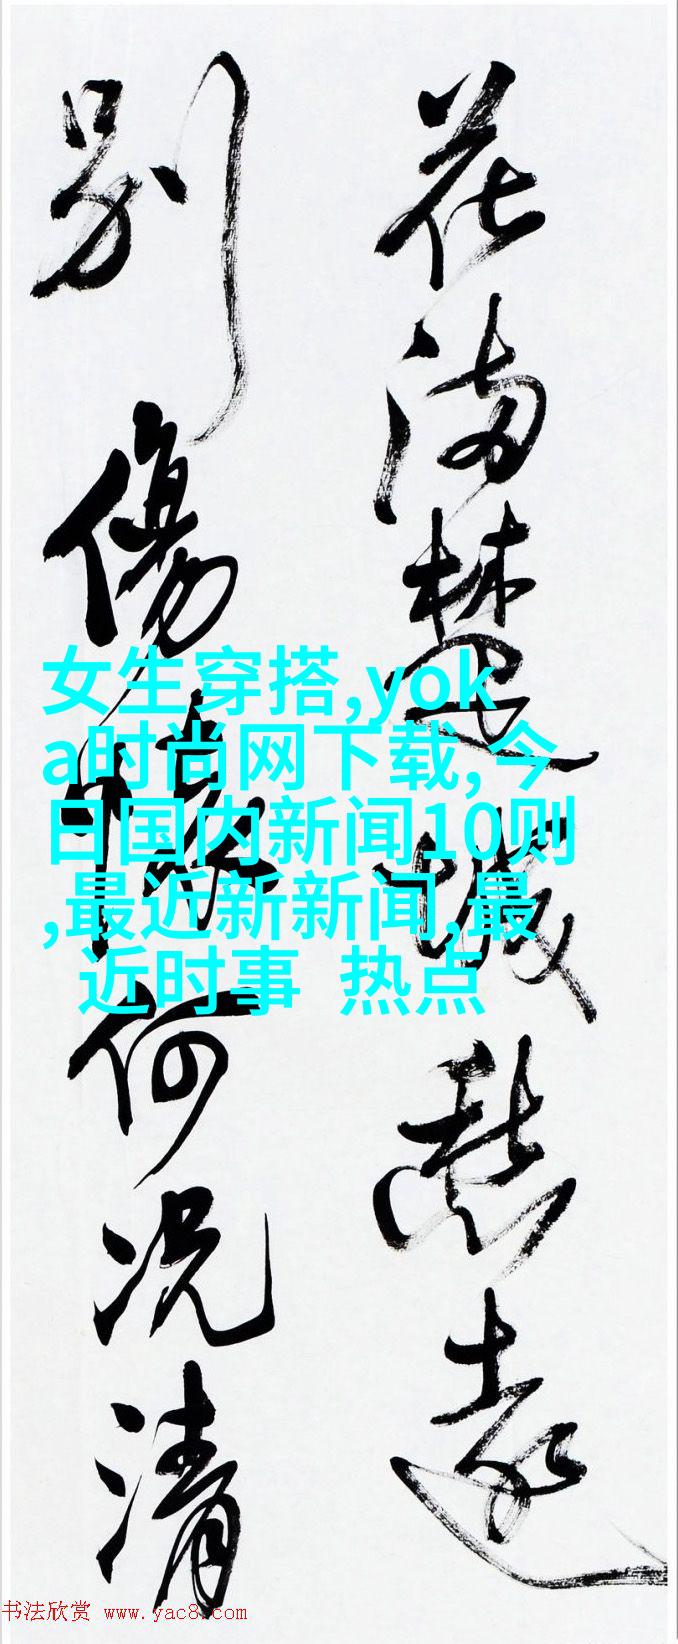 花满楚城愁远
别傷情何况清
女生穿搭,yok
a时尚网下载,今
日国内新闻10则
,最近新新闻,最
近时事 热点
书法欣赏 www.yac8.com